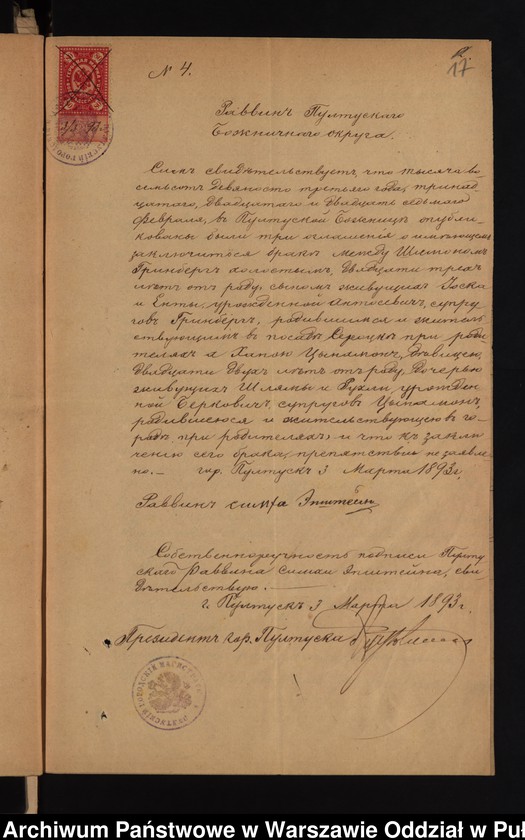 № 4.
17
Раввинъ Пултускаго
Божничнаго округа.
Симъ свидѣтельствуетъ, что тысяча во-
семьсотъ девяносто третьяго года, тринад-
цатаго, двадцатаго и двадцать седьмаго
Февраля, въ Пултуской Божницѣ опубли-
кованы были три оглашенія о имѣющемъ
заключиться бракѣ между
Гринбергъ холостымъ, двадцати трехъ
лѣтъ отъ роду, сыномъ живущихъ
и Енты, урожденной супру-
говъ Гринбергъ, родившимся и житель-
ствующимъ въ посадѣ Сероцкъ при роди-
теляхъ а Цынамонъ, дѣвицею,
двадцати двухъ лѣтъ отъ роду, дочерью
живущихъ Шлямы и Рухли, урожден-
ной Берковичъ, супруговъ Цынамонъ,
родившеюся и жительствующею въ го-
родѣ при родителяхъ, и что къ заклю-
ченію сего брака, препятствій не заявле-
но. — гор. Пултускъ 3 Марта 1893 г.
Раввинъ Эпштейнъ
Собственноручность подписи Пулту-
скаго Раввина Эпштейна, сви-
дѣтельствую.
г. Пултускъ 3 Марта 1893 г.
Президентъ гор. Пултуска
Archiwum Państwowe w Warszawie Oddział w Puł